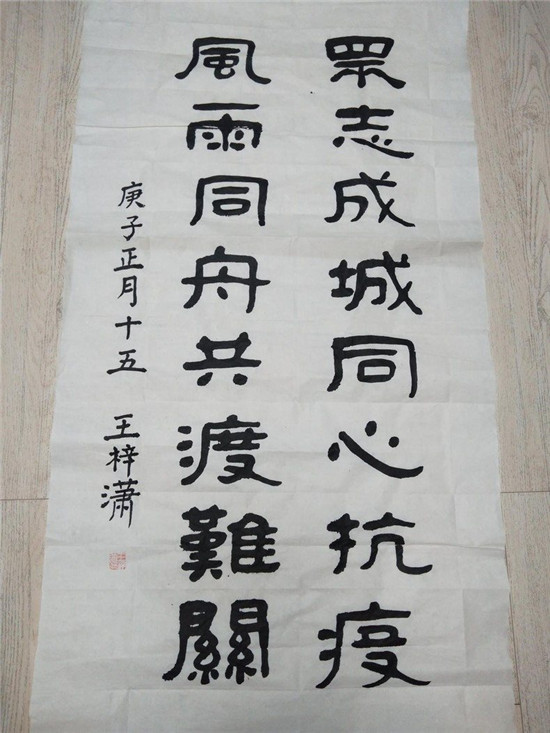 眾志成城同心抗疫
風雨同舟共渡難關
庚子正月十五 王梓潇